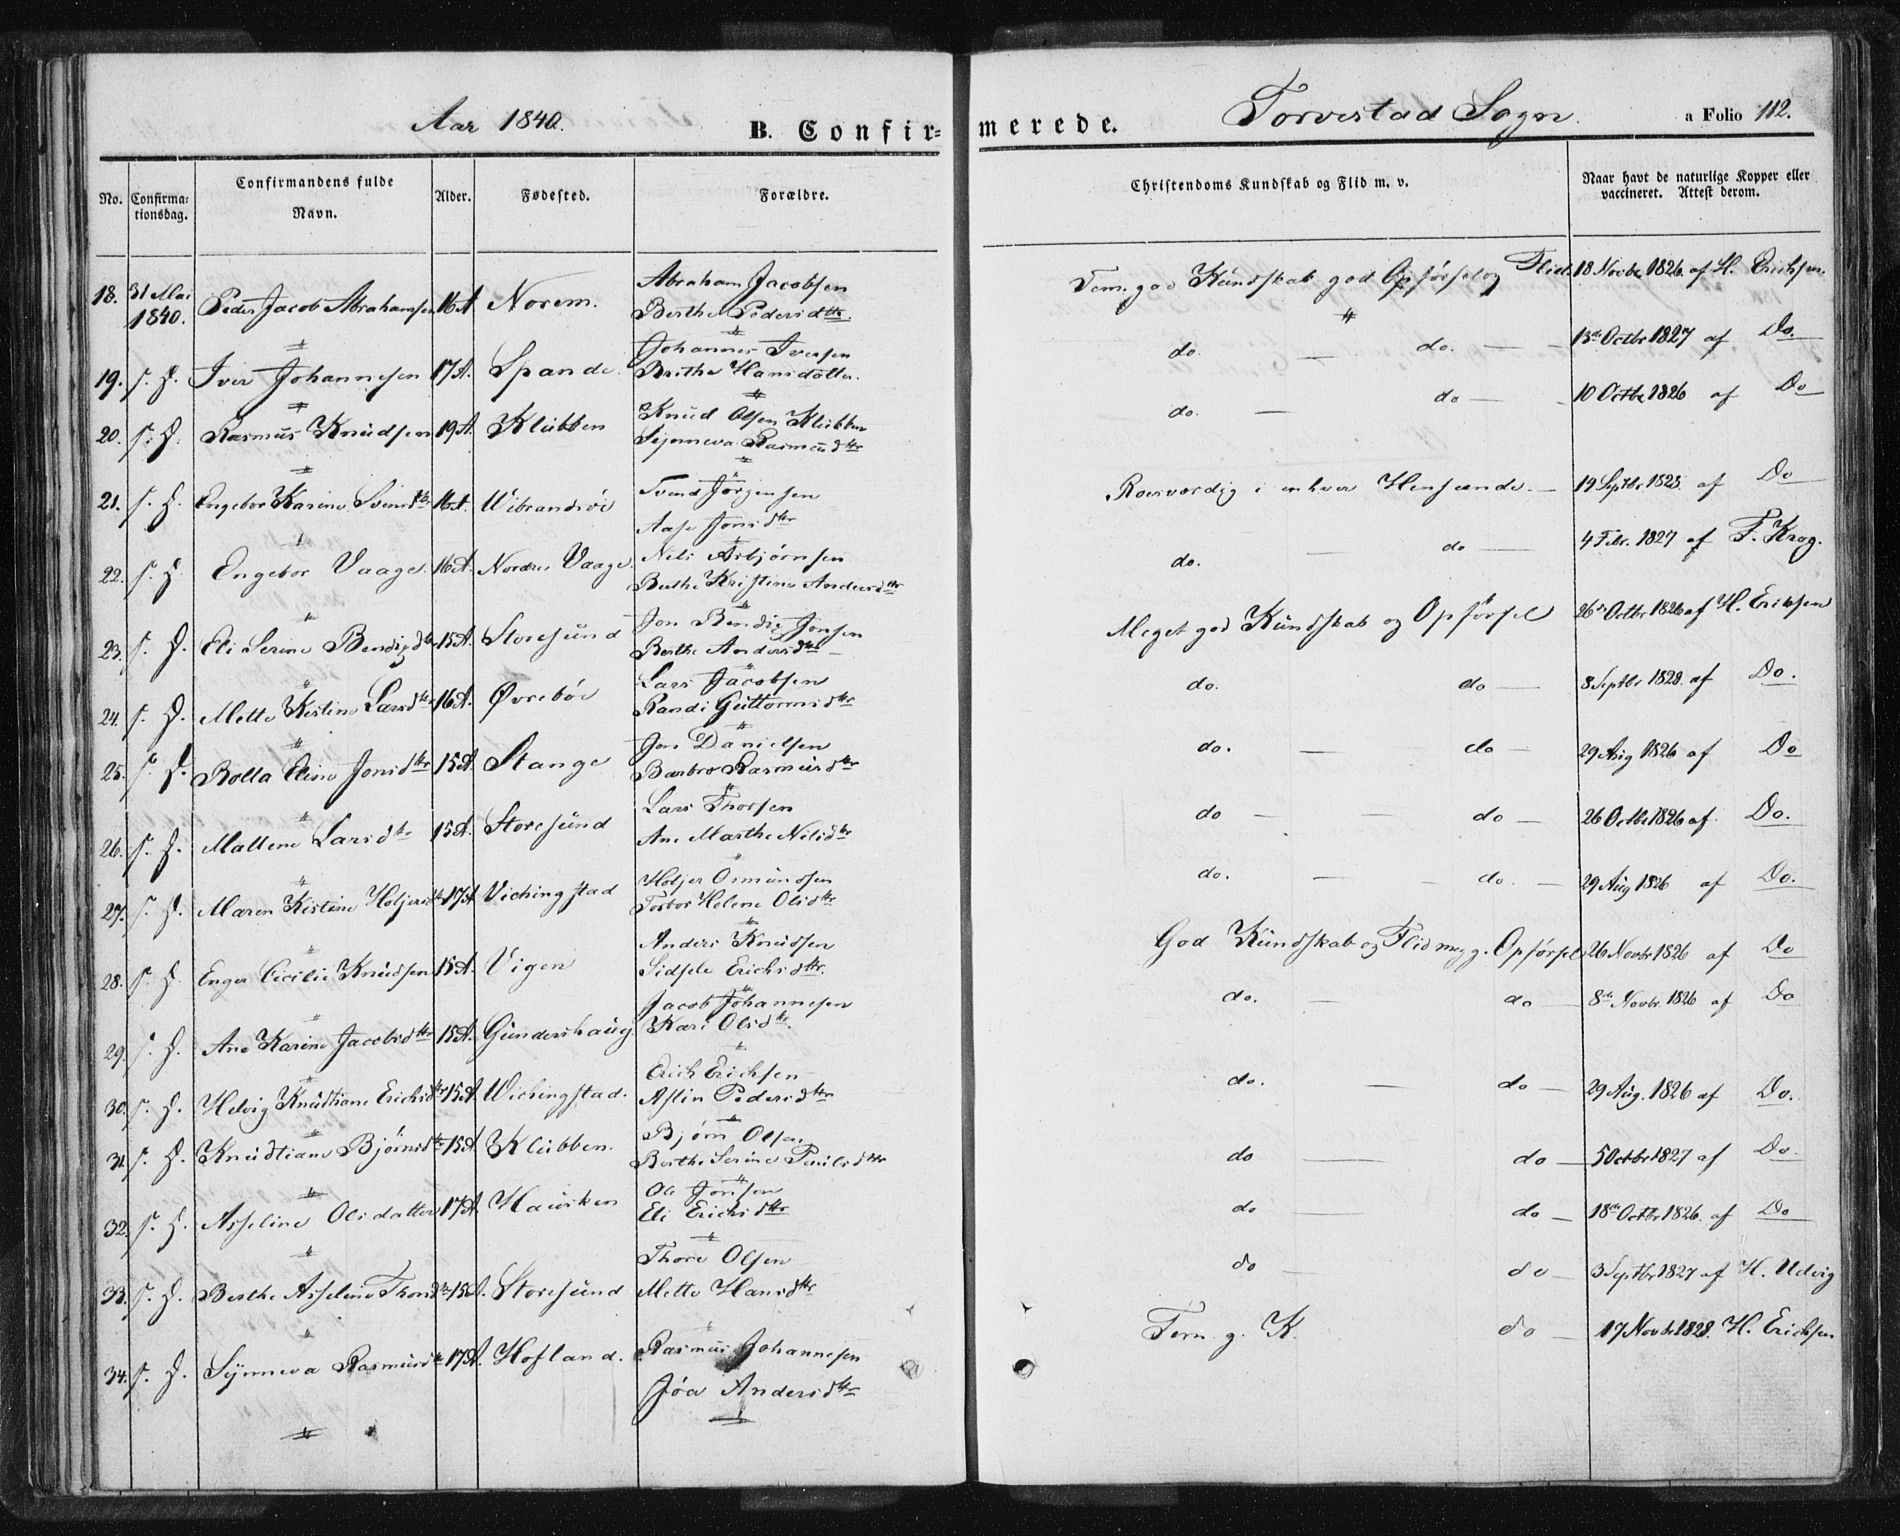 Aar 1840.
B. Confirmerede.
Torvestad Sogn.
a Folio 112.
No.
Confirmationsdag.
Confirmandens fulde Navn.
Alder.
Fødested.
Forældre.
Christendoms Kundskab og Flid m. v.
Naar havt de naturlige Kopper eller vaccineret. Attest derom.
18. 31 Mai 1840. Peder Jacob Abrahamsen 16 A Norem. Abraham Jacobsen Berthe Pedersdtr. Tem. god Kundskab god Opførsel og Flid 18 Novbr 1826 af H. Erichsen.
19. s. D. Iver Johannesen 17 A. Spande. Johannes Iversen Brithe Hansdotter. do. — do. — 13de Octbr 1827 af Do.
20. s. D. Rasmus Knudsen 19 A. Klubben Knud Olsen Klubben Synneva Rasmusdtr do. — do — 10 Octbr 1826 af Do
21. s. D. Engebor Karine Svendsdtr 16 A. Wibrandsøe Svend Jørgensen Aase Jonsdtr Roesværdig i enhver Henseende. — 19 Septbr 1828. af Do
22. s. D. Engebor Vaage. 16 A. Nordre Vaage. Nels Asbjørnsen Berthe Kristine Andersdtr do. — do — 4 Febr. 1827 af F. Krog.
23. s. D. Eli Serine Bendigsdtr 15 A. Storesund Jon Bendig Jonsen Berthe Andersdtr Meget god Kundskab og Opførsel 26de Octbr 1826 af H. Erichsen
24. s. D. Mette Kistine Larsdtr 16 A. Øvrebøe Lars Jacobsen Randi Guttormsdtr do. do — 8 Septbr 1828. af Do.
25. s. D. Rolla Eline Jonsdtr 15 A. Stange Jon Danielsen Barbro Rasmusdtr do. — do — 29 Aug 1826 af Do
26. s. D. Mallene Larsdtr 15 A. Storesund Lars Thorsen Ane Marthe Nilsdtr do — — do — 26 Octbr 1826 af Do.
27. s. D. Maren Kistine Holjersdtr 17 A Vichingstad Holjer Omundsen Torbor Helene Olsdtr do. — — do. — 29 Aug 1826 af Do.
28. s. D. Enger Cicilie Knudsen 15 A. Vigen Anders Knudsen Sidsele Erichsdtr. God Kundskab og Flid meg g. Opførsel 26 Novbr 1826 af Do
29. s. D. Ane Karine Jacobsdtr 15 A. Gunderhaug Jacob Johannesen Kari Olsdtr. do. — do — 8de Novbr. 1826 af Do
30. s. D. Helvig Knudtiane Erichsdtr 15 A Wichingstad. Erich Erichsen Aslin Pedersdtr do. — do — 29 Aug. 1826 af Do.
31. s. D. Knudtiane Bjørnsdtr 15 A. Klubben. Bjørn Olsen Berthe Serine Paulsdtr do — do — 5 Octbr 1827 af Do.
32. s. D. Asseline Olsdatter 17 A. Hausken Ole Jonsen Eli Erichsdtr do — do — 18de Octbr 1826. af Do
33. s. D. Berthe Asseline Thorsdtr 15 A. Storesund Thore Olsen Mette Hansdtr do — do — 3 Septbr 1827 af H. Udvig
34. s. D. Synneva Rasmusdtr 17 A. Hofland. Rasmus Johannesen Jøa Andersdtr Tem. g. K. do — 17 Novbr 1828. H. Erichsen